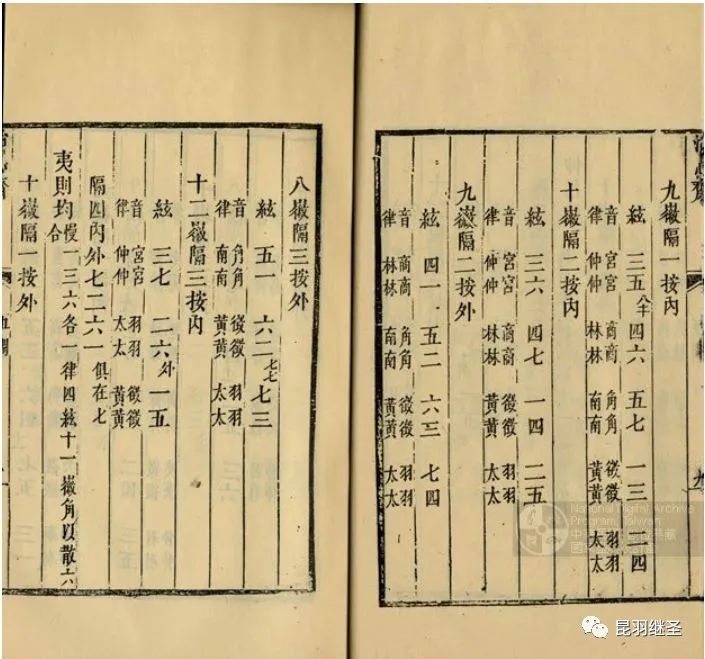 九徽隔一按內
絃 三五 八半 四六 五七 一三 二四
音 宮宮 商商 角角 徵徵 羽羽
律 仲仲 林林 南南 黃黃 太太
十徽隔二按內
絃 三六 四七 一四 二五
音 宮宮 商商 徵徵 羽羽
律 仲仲 林林 黃黃 太太
九徽隔二按外
絃 四一 五二 六三 七四
音 商商 角角 徵徵 羽羽
律 林林 南南 黃黃 太太
八徽隔三按外
絃 五一 六二 七七 七三
音 角角 徵徵 羽羽
律 南南 黃黃 太太
十二徽隔三按內
絃 三七 二六 外 一五
音 宮宮 羽羽 徵徵
律 仲仲 太太 黃黃
隔四內外七二六一俱在七
夷則均慢一三六各一律四絃十一徽角以散六
合
十徽隔一按外
National Digital Archive
Program, Taiwan
昆羽继圣